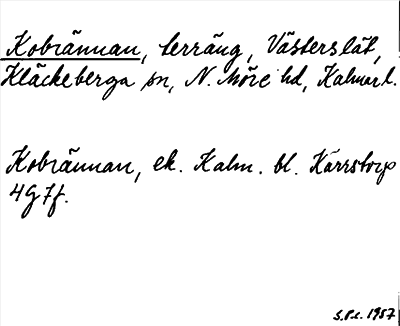 Kobrännan, terräng, Västerslät,
Kläckeberga sn, N. Möre hd, Kalmar l.
Kobrännan, ek. Kalm. bl. Kärrstorp
4G 7f.
1957